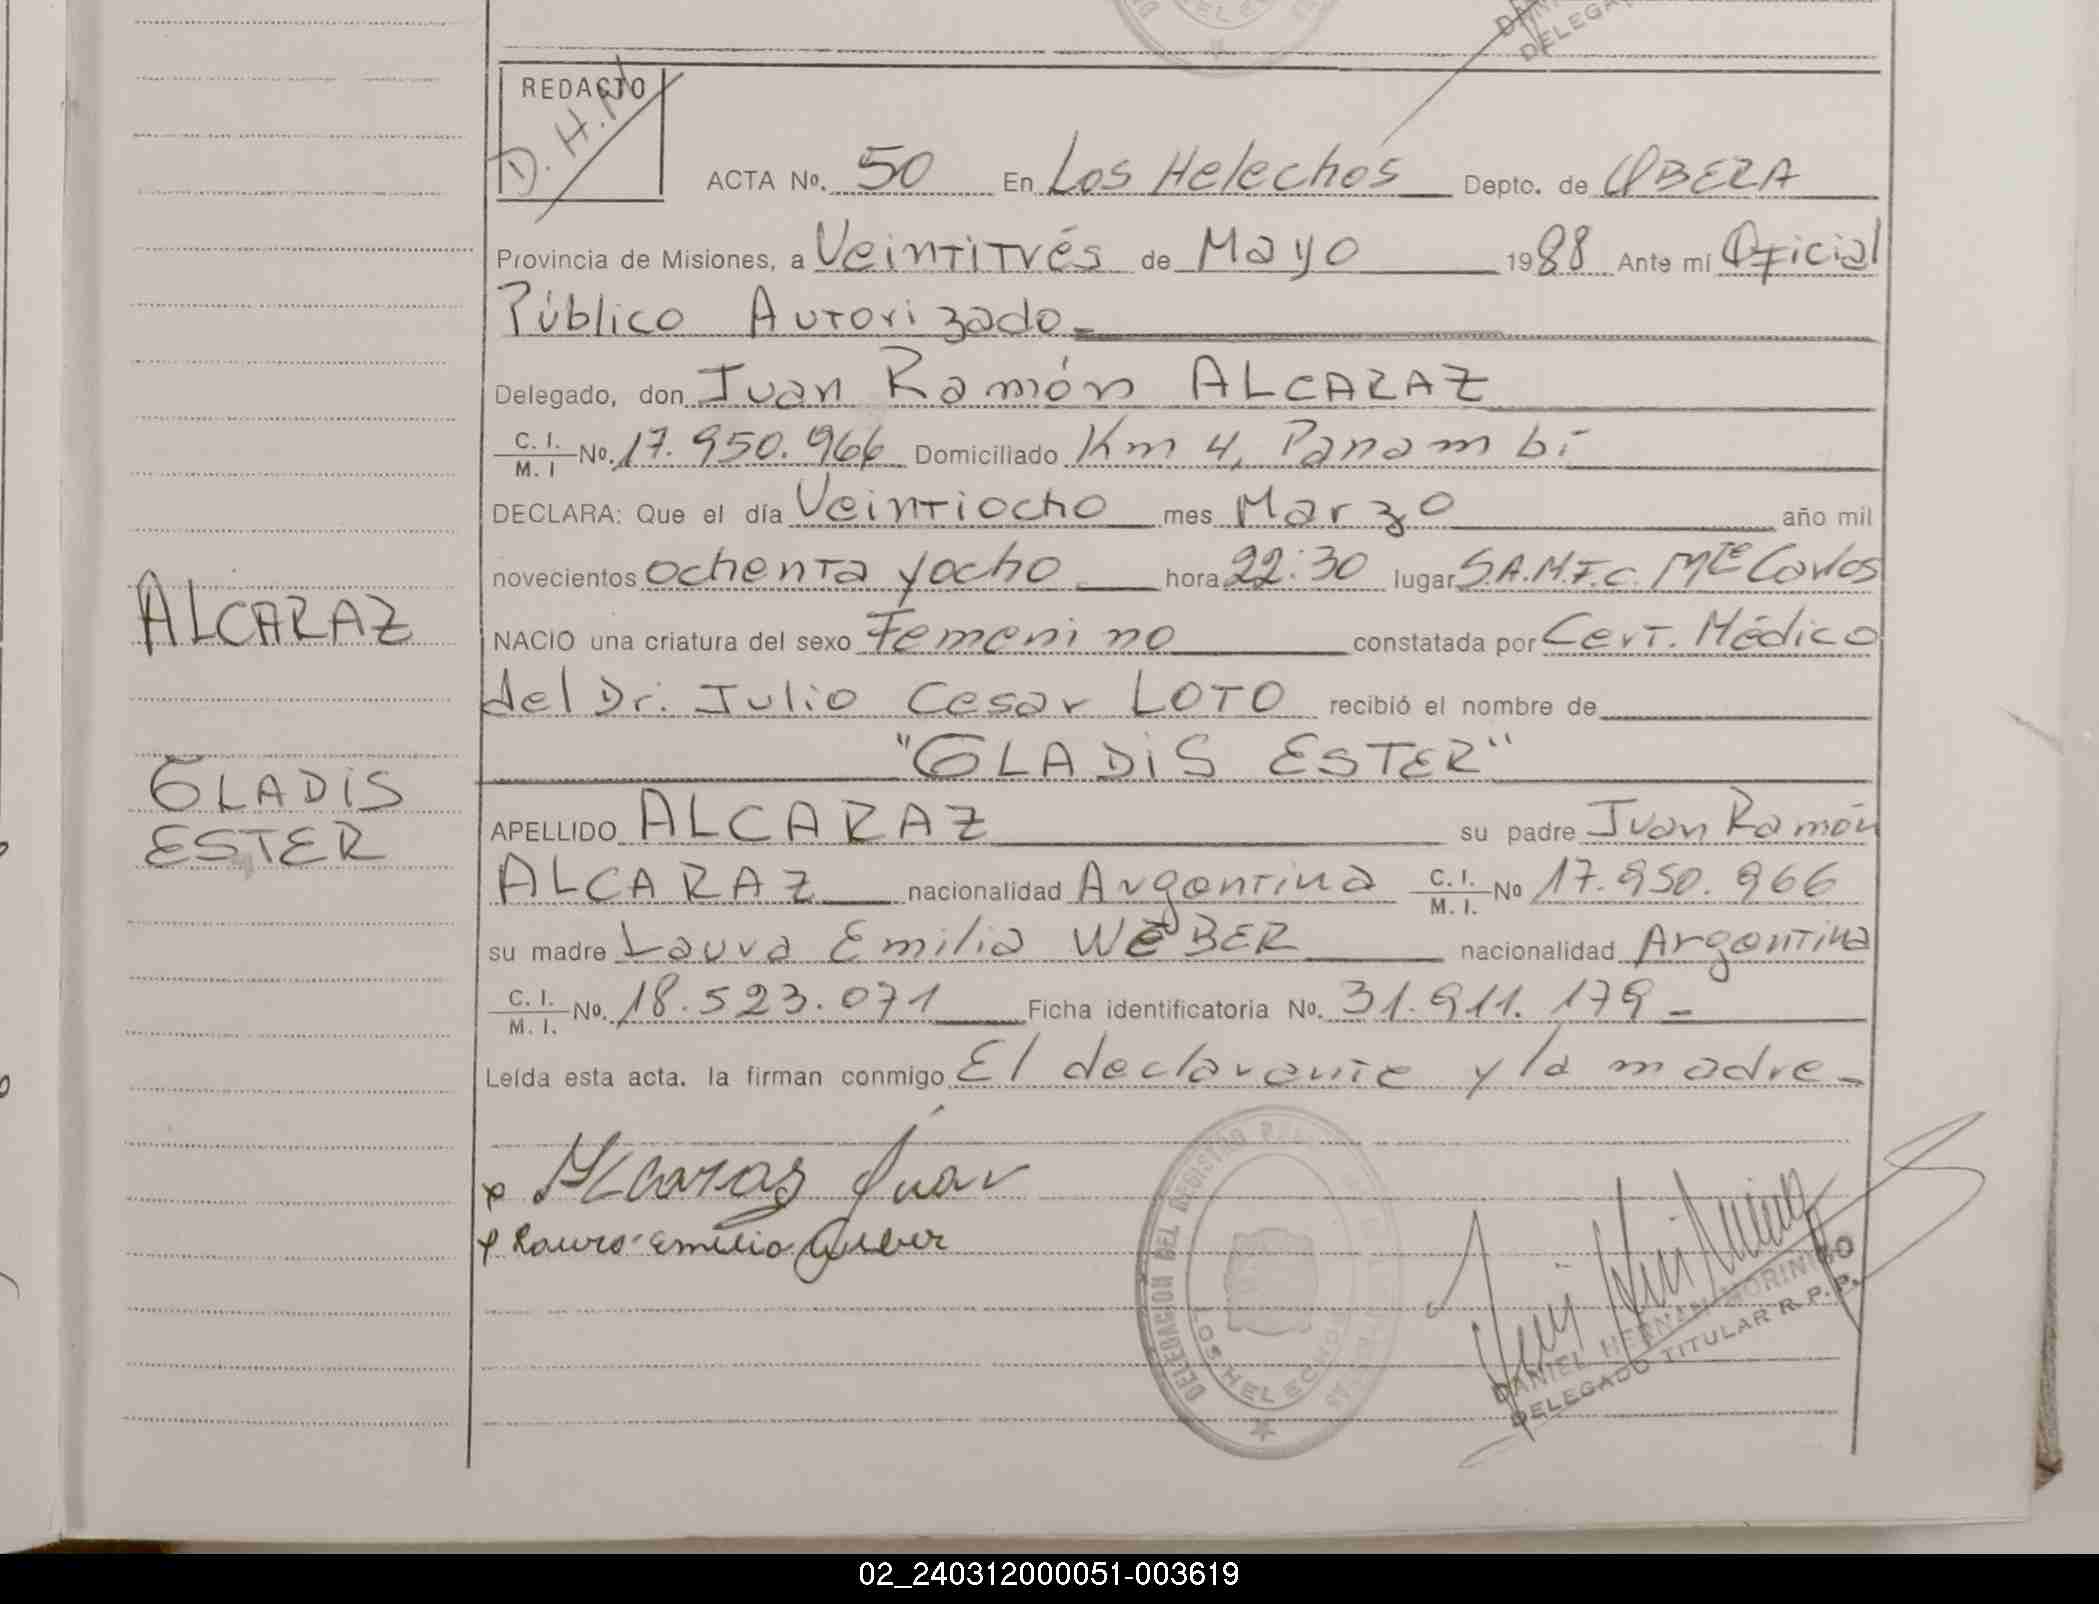 REDACTO
D. H. M
ACTA No. 50 En Los Helechos Depto. de OBERA
Provincia de Misiones, a Veintitrés de Mayo 1988 Ante mí Oficial
Público Autorizado
Delegado, don Juan Ramón ALCARAZ
C. I. / M. I No. 17.950.966 Domiciliado Km 4, Panambí
DECLARA: Que el día Veintiocho mes Marzo año mil
novecientos ochenta y ocho hora 22:30 lugar S.A.M.F.c. Mte Carlos
NACIO una criatura del sexo Femenino constatada por Cert. Médico
del Dr. Julio Cesar LOTO recibió el nombre de
"GLADIS ESTER"
APELLIDO ALCARAZ su padre Juan Ramón
ALCARAZ nacionalidad Argentina C. I. / M. I. No 17.950.966
su madre Laura Emilia WEBER nacionalidad Argentina
C. I. / M. I. No. 18.523.071 Ficha identificatoria No. 31.911.179
Leída esta acta. la firman conmigo El declarante y la madre
ALCARAZ
GLADIS
ESTER
Alcaras Juan
Laura Emilia Weber
DELEGACION DEL REGISTRO
LOS HELECHOS
DANIEL HERNAN MORINIGO
DELEGADO TITULAR R. P. P.
02_240312000051-003619